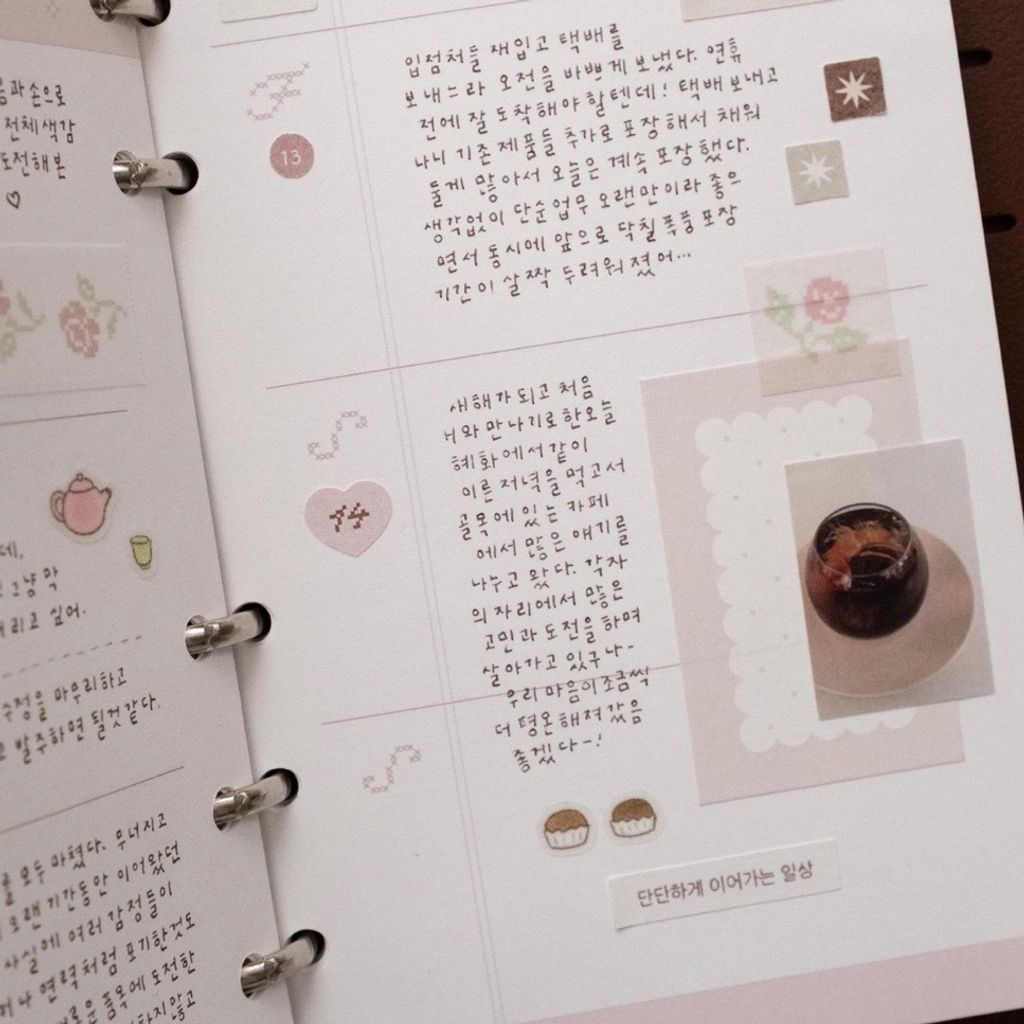 음과손으로
전체색감
도전해본
♡
데.
그냥 막
버리고 싶어.
수정을 마무리하고
고 발주하면 될것같다.
를 모두 마쳤다. 무너지고
오랜 기간동안 이어왔던
사실에 여러 감정들이
어나 연력처럼 포기한것도
새로운 품목에 도전한
하지않고
입점처들 재입고 택배를
보내느라 오전을 바쁘게 보냈다. 연휴
전에 잘 도착해야 할텐데! 택배 보내고
나니 기존 제품들 추가로 포장해서 채워
둘게 많아서 오늘은 계속 포장했다.
생각없이 단순업무 오랜만이라 좋으
면서 동시에 앞으로 닥칠 폭풍 포장
기간이 살짝 두려워졌어...
13
새해가 되고 처음
H와 만나기로한오늘
혜화에서 같이
이른 저녁을 먹고서
골목에 있는 카페
에서 많은 얘기를
나누고 왔다. 각자
의 자리에서 많은
고민과 도전을 하며
살아가고 있구나-
우리 마음이 조금씩
더 평온해져갔음
좋겠다-!
14
단단하게 이어가는 일상